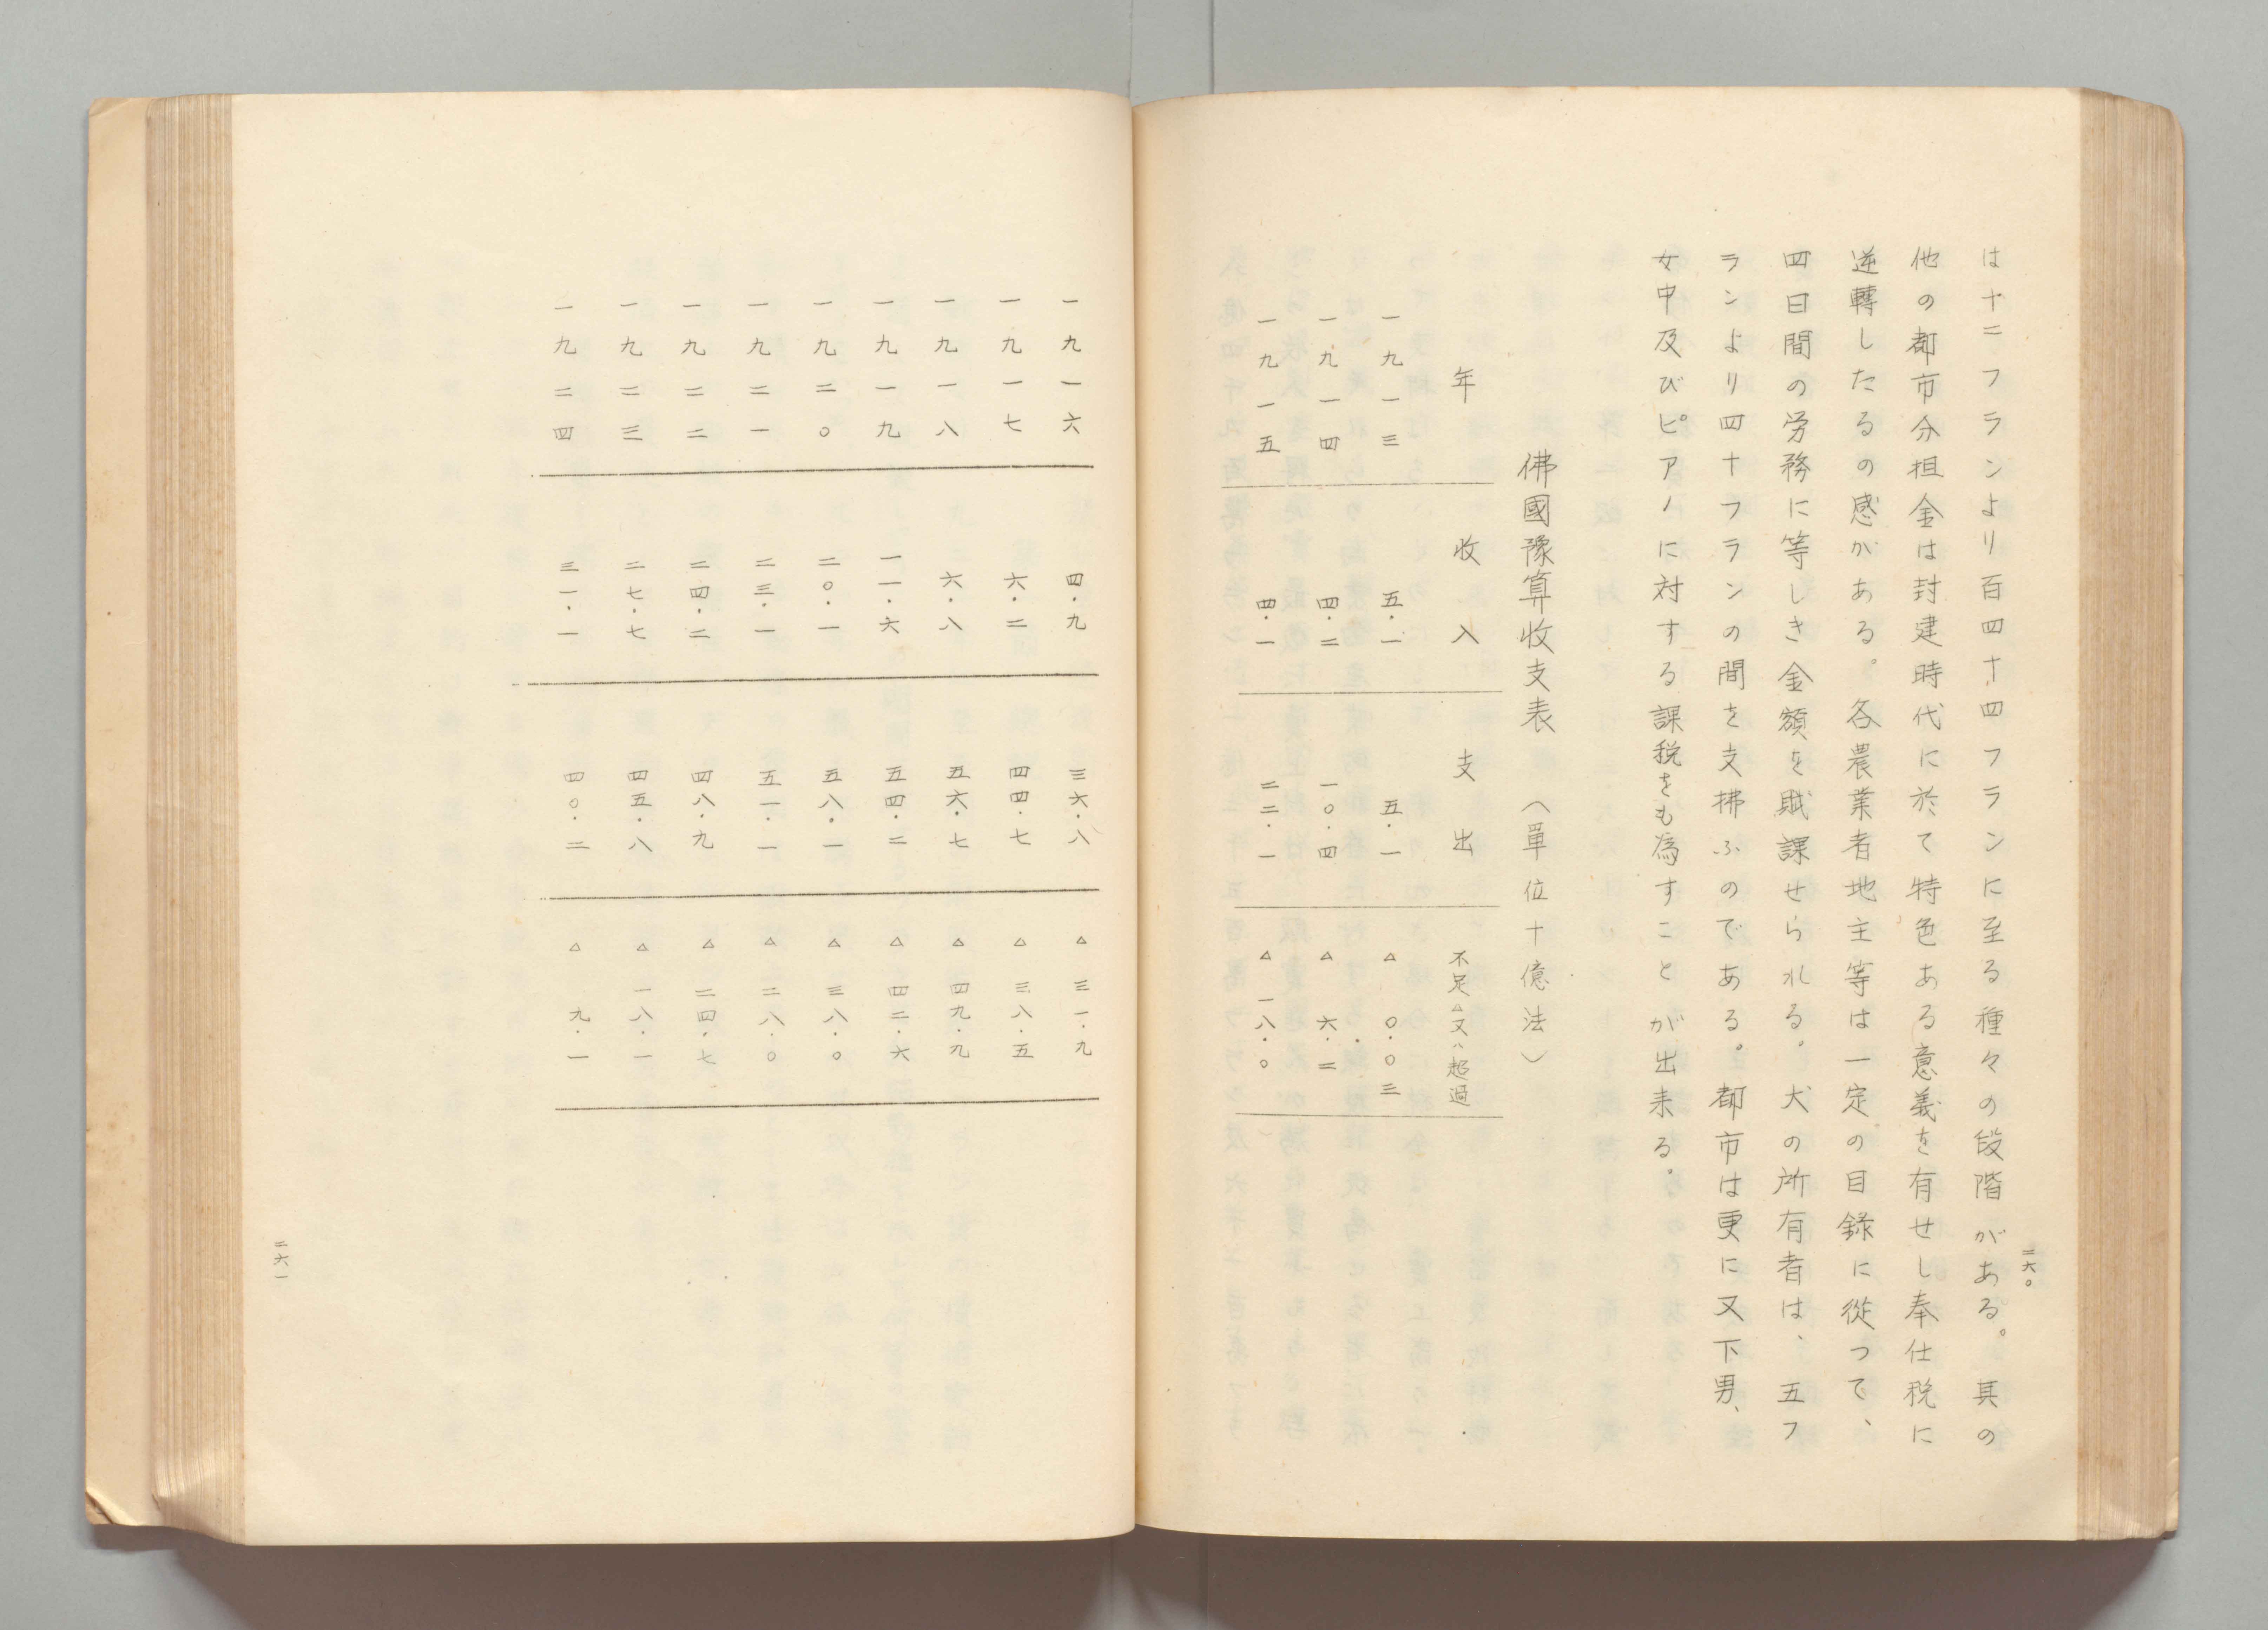 は十二フランより百四十四フランに至る種々の段階がある。其の
他の都市分担金は封建時代に於て特色ある意義を有せし奉仕税に
逆轉したるの感がある。各農業者地主等は一定の目録に從つて、
四日間の労務に等しき金額を賦課せられる。犬の所有者は、五フ
ランより四十フランの間を支拂ふのである。都市は更に又下男、
女中及びピアノに対する課税をも為すことが出来る。
佛國豫算收支表（單位十億法）
年 收入 支出 不足△又ハ超過
一九一三 五・一 五・一 △ 〇・〇三
一九一四 四・二 一〇・四 △ 六・二
一九一五 四・一 二二・一 △ 一八・〇
二六〇
一九一六 四・九 三六・八 △ 三一・九
一九一七 六・二 四四・七 △ 三八・五
一九一八 六・八 五六・七 △ 四九・九
一九一九 一一・六 五四・二 △ 四二・六
一九二〇 二〇・一 五八・一 △ 三八・〇
一九二一 二三・一 五一・一 △ 二八・〇
一九二二 二四・二 四八・九 △ 二四・七
一九二三 二七・七 四五・八 △ 一八・一
一九二四 三一・一 四〇・二 △ 九・一
二六一